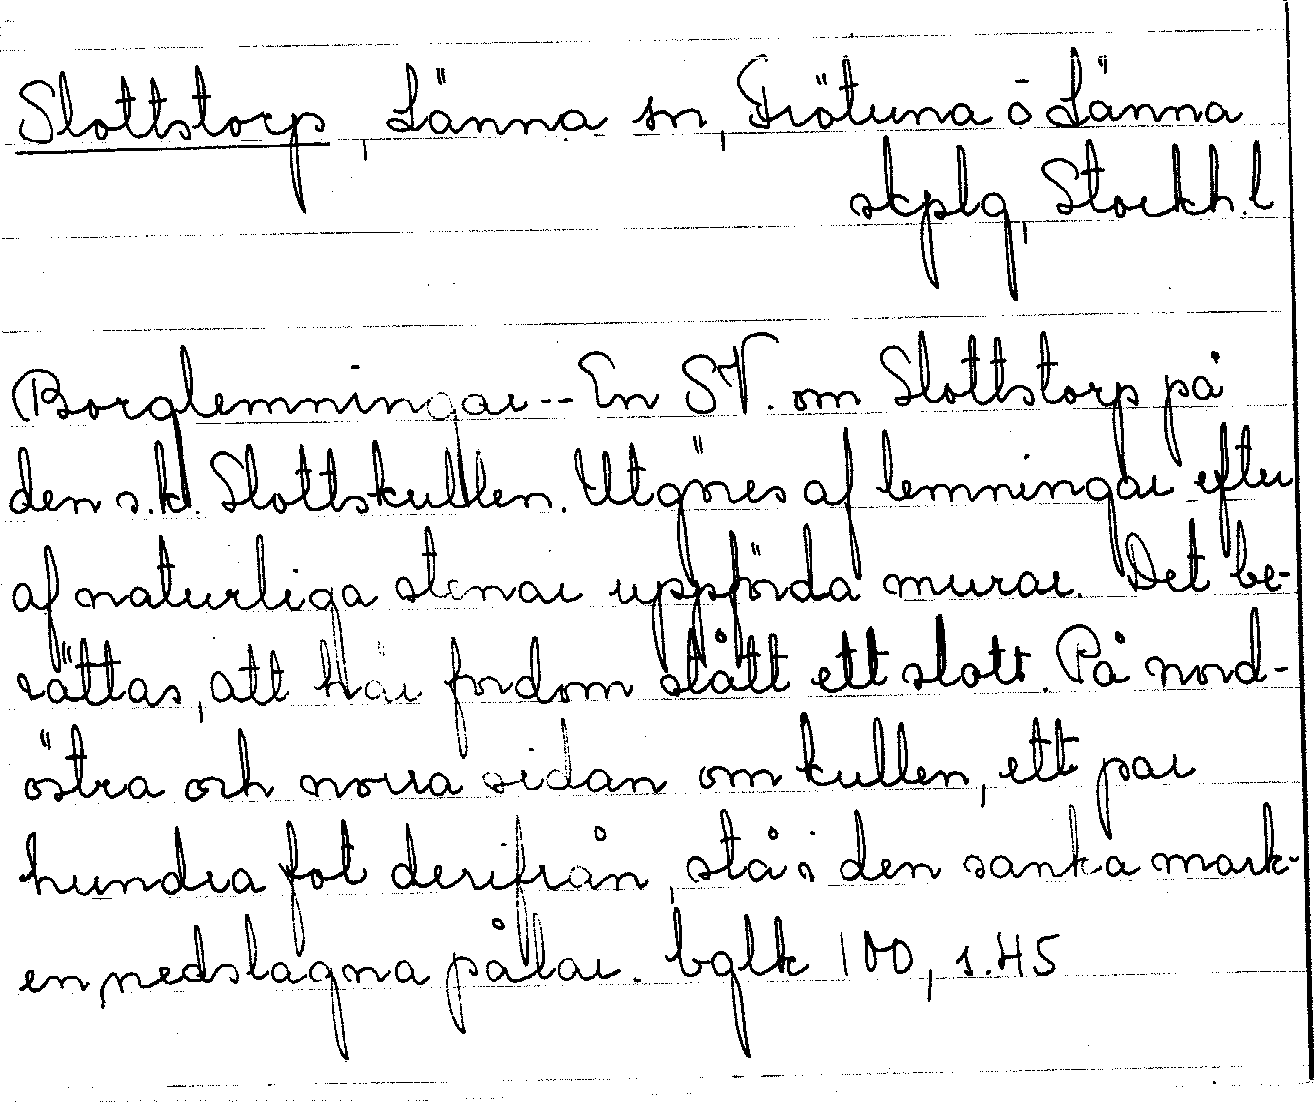 Slottstorp, Länna sn, Frötuna o Länna
skplg, Stockh. l
Borglemningar -- En SV. om Slottstorp på
den s.k. Slottskullen. Utgöres af lemningar efter
af naturliga stenar uppförda murar. Det be-
rättas, att här fordom stått ett slott. På nord-
östra och norra sidan om kullen, ett par
hundra fot derifrån, stå i den sanka mark-
en nedslagna pålar. bglk 100, s. 45